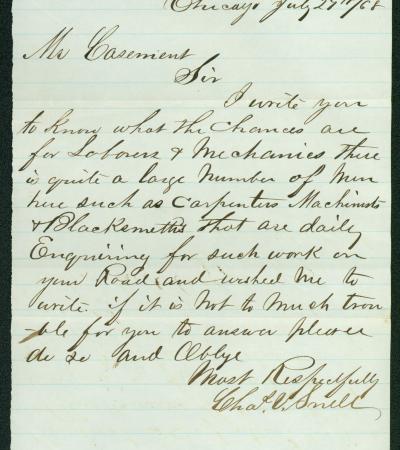 Chicago July 29th /68
Mr Casement
Sir
I write you
to Know what the Chances are
for Laborers & Mechanics there
is quite a large Number of Men
here such as Carpenters Machinists
& Blacksmeths that are daily
Enquiring for such work on
your Road and wished me to
write if it is Not to Much trou
-ble for you to answer please
do so and Oblige
Most Respectfully
Chas. V. Snell